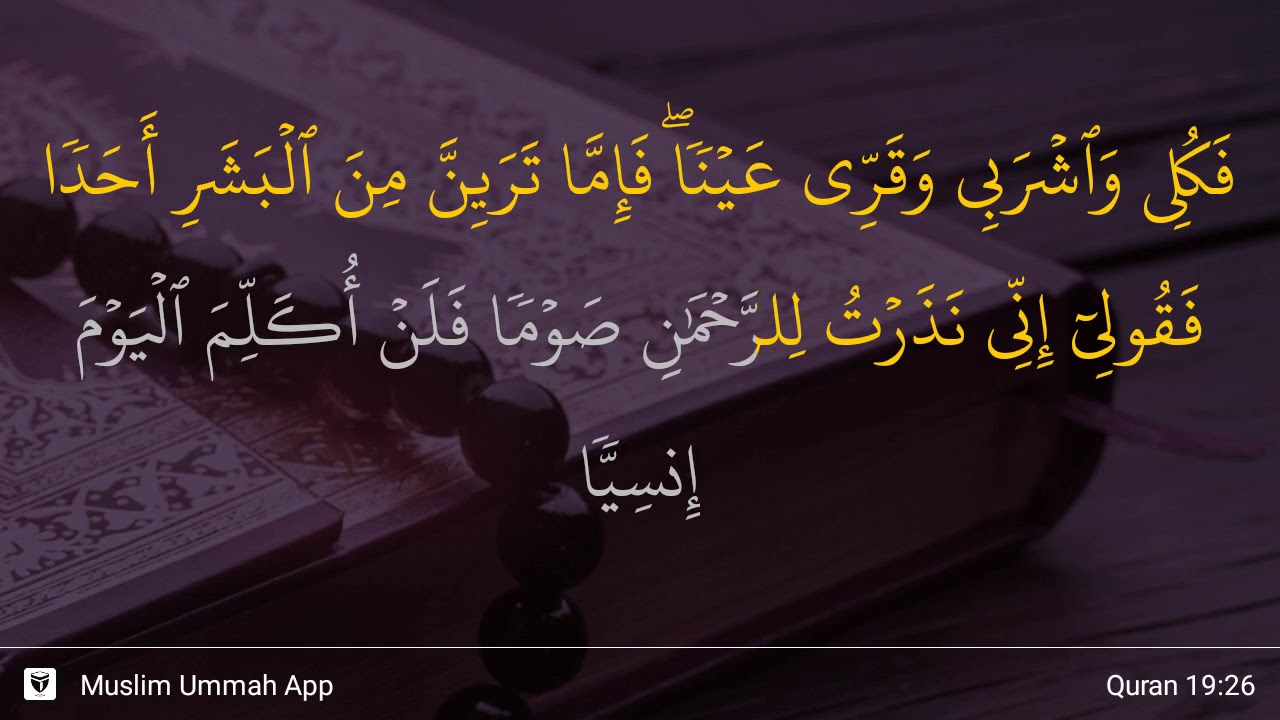 فَكُلِي وَٱشْرَبِي وَقَرِّى عَيْنًۭا ۖ فَإِمَّا تَرَيِنَّ مِنَ ٱلْبَشَرِ أَحَدًۭا
فَقُولِىٓ إِنِّى نَذَرْتُ لِلرَّحْمَـٰنِ صَوْمًۭا فَلَنْ أُكَلِّمَ ٱلْيَوْمَ
إِنسِيًّۭا
Muslim Ummah App
Quran 19:26